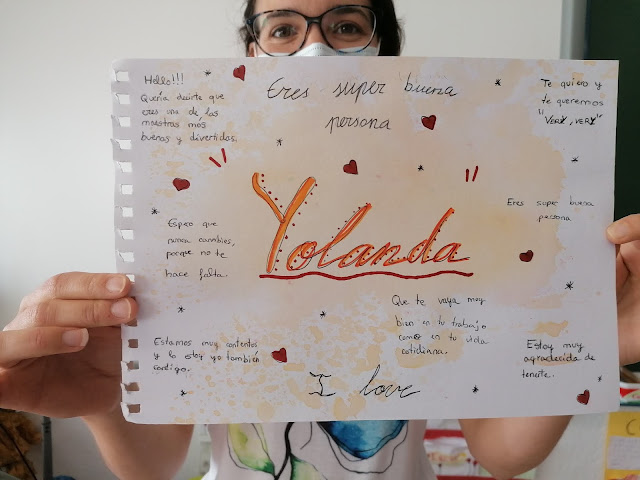 Hello!!!
Quería decirte que
eres una de las
maestras más
buenas y divertidas.
Eres super buena
persona
Te quiero y
te queremos
"VERY, VERY"
Yolanda
Eres super buena
persona
Espero que
nunca cambies,
porque no te
hace falta.
Que te vaya muy
bien en tu trabajo
como en tu vida
cotidiana.
Estamos muy contentos
y lo estoy yo también
contigo.
Estoy muy
agradecida de
tenerte.
I love